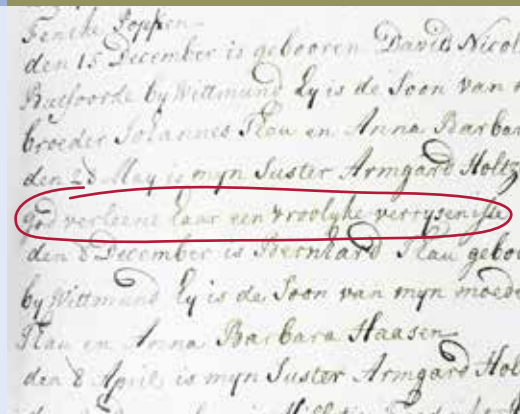 Fencke Poppen
den 15 December is gebooren David Nicol
Buttforde by Wittmund Hy is de Soon van m
broeder Johannes Ilau en Anna Barbar
den 23 May is myn Suster Armgard Holtz
god verleene haar een vroolyke verrysenisse
den 8 December is Bernhard Ilau geboo
by Wittmund Hy is de Soon van myn moede
Ilau en Anna Barbara Haasen
den 8 April is myn Suster Armgard Hol